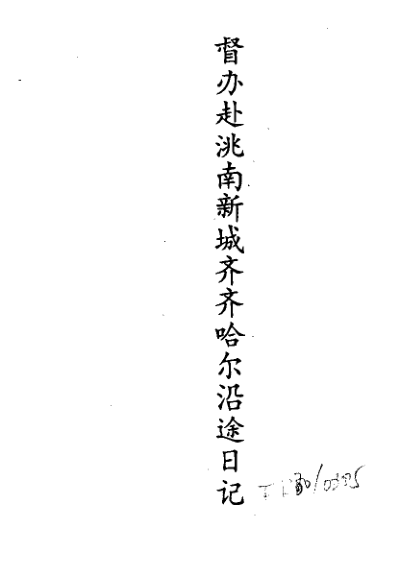 督办赴洮南新城齐齐哈尔沿途日记